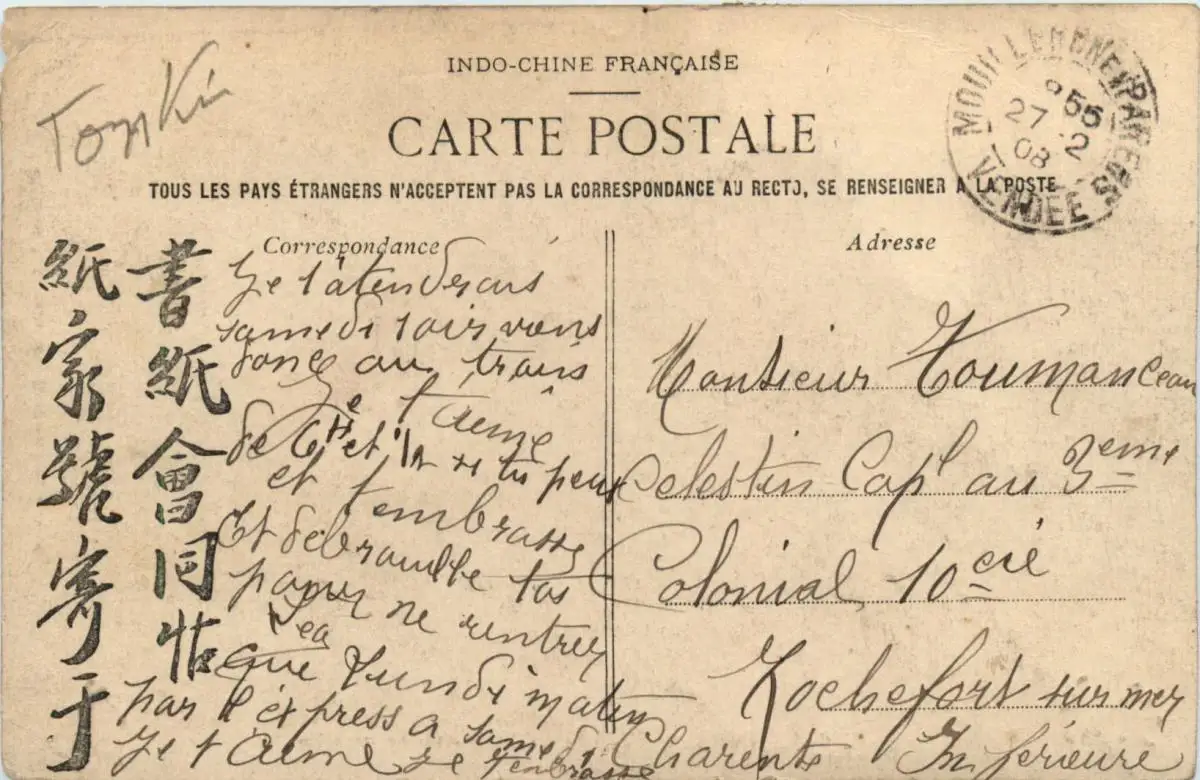 Tonkin
INDO-CHINE FRANÇAISE
CARTE POSTALE
TOUS LES PAYS ÉTRANGERS N'ACCEPTENT PAS LA CORRESPONDANCE AU RECTO, SE RENSEIGNER A LA POSTE
MOUILLERON-EN-PAREDS
8 55
27 2
08
VENDÉE
Correspondance
書紙會同帖
紙家號寄于
Je t'atenderais
samedi soir viens
donc au train
Je t'aime
de et si tu peux
et t'embrasse
Et debrouille tos
pour ne rentrer
que Lundi matin
par l'express a samedi
Je t'aime Je t'embrasse
Adresse
Monsieur Toumanceau
Celestin Capl au 3eme
Colonial 10cie
Rochefort sur mer
Charente Inférieure